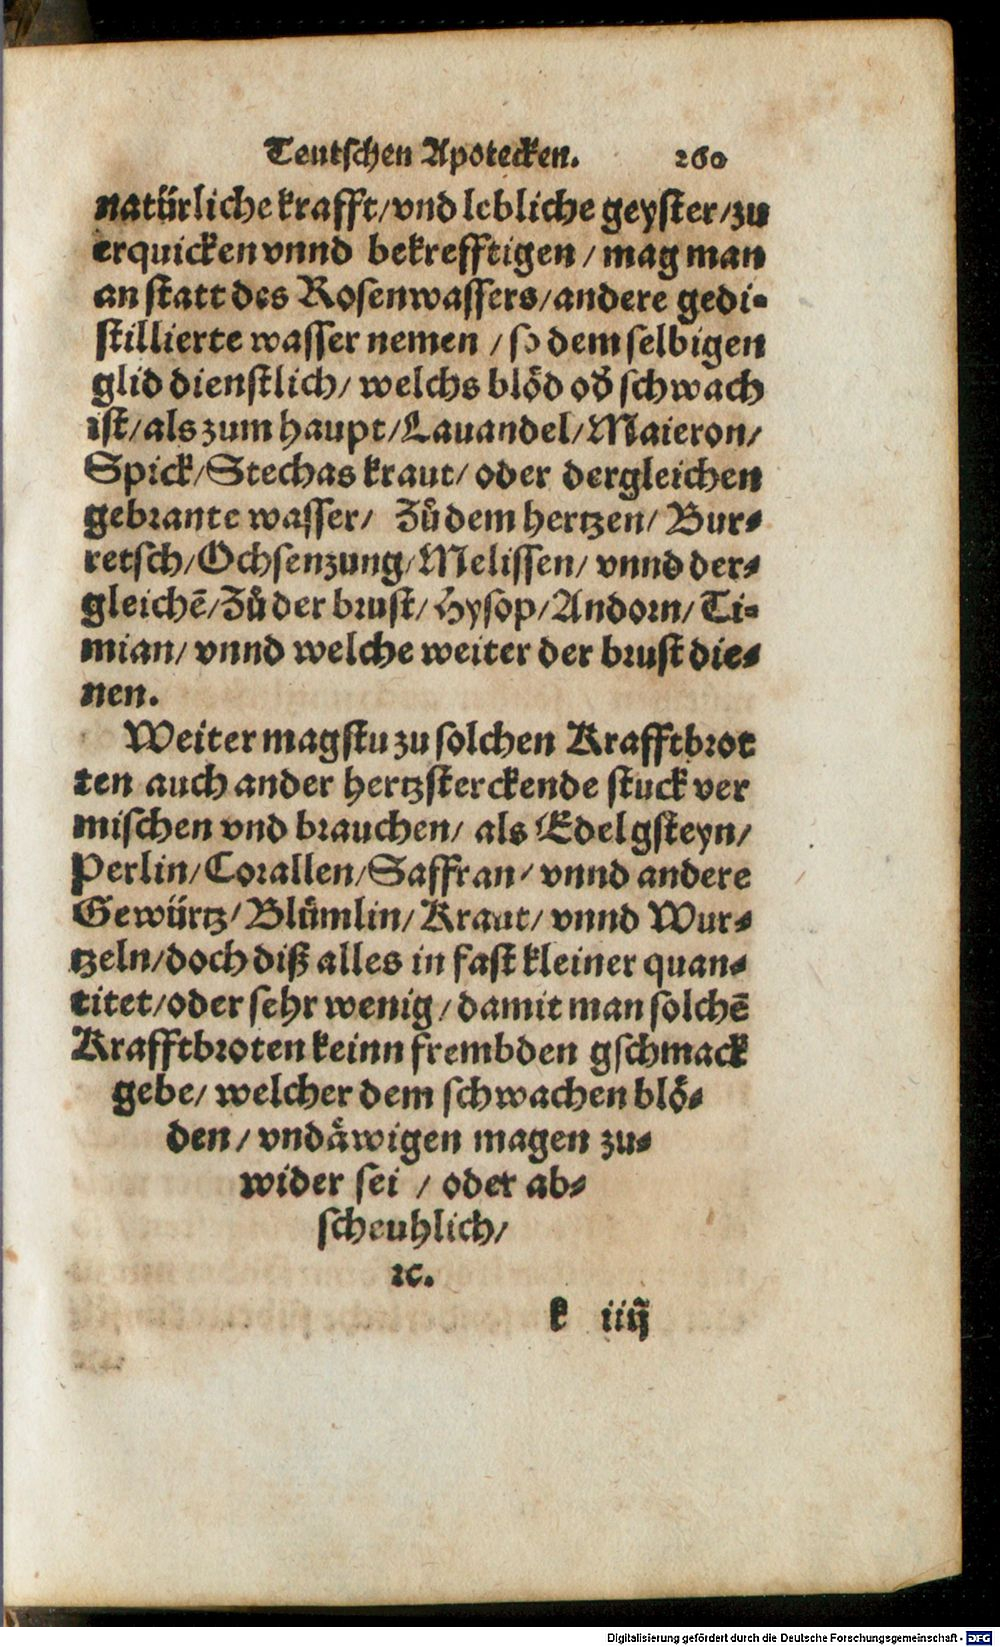 Teutschen Apotecken. 260
natürliche krafft/vnd lebliche geyster/zu
erquicken vnnd bekrefftigen/mag man
an statt des Rosenwassers/andere gedi-
stillierte wasser nemen/so dem selbigen
glid dienstlich/welchs blöd od̛ schwach
ist/als zum haupt/Lauandel/Maieron/
Spick/Stechas kraut/oder dergleichen
gebrante wasser/ Zů dem hertzen/Bur-
retsch/Ochsenzung/Melissen/vnnd der-
gleichē/Zů der brust/Hysop/Andorn/Ti-
mian/vnnd welche weiter der brust die-
nen.
Weiter magstu zu solchen Krafftbrot
ten auch ander hertzsterckende stuck ver
mischen vnd brauchen/als Edelgsteyn/
Perlin/Corallen/Saffran/vnnd andere
Gewürtz/Blümlin/Kraut/vnnd Wur-
tzeln/doch diß alles in fast kleiner quan-
titet/oder sehr wenig/damit man solchē
Krafftbroten keinn frembden gschmack
gebe/welcher dem schwachen blö-
den/vndäwigen magen zu-
wider sei/oder ab-
scheuhlich/
ꝛc.
k iiij
Digitalisierung gefördert durch die Deutsche Forschungsgemeinschaft - DFG